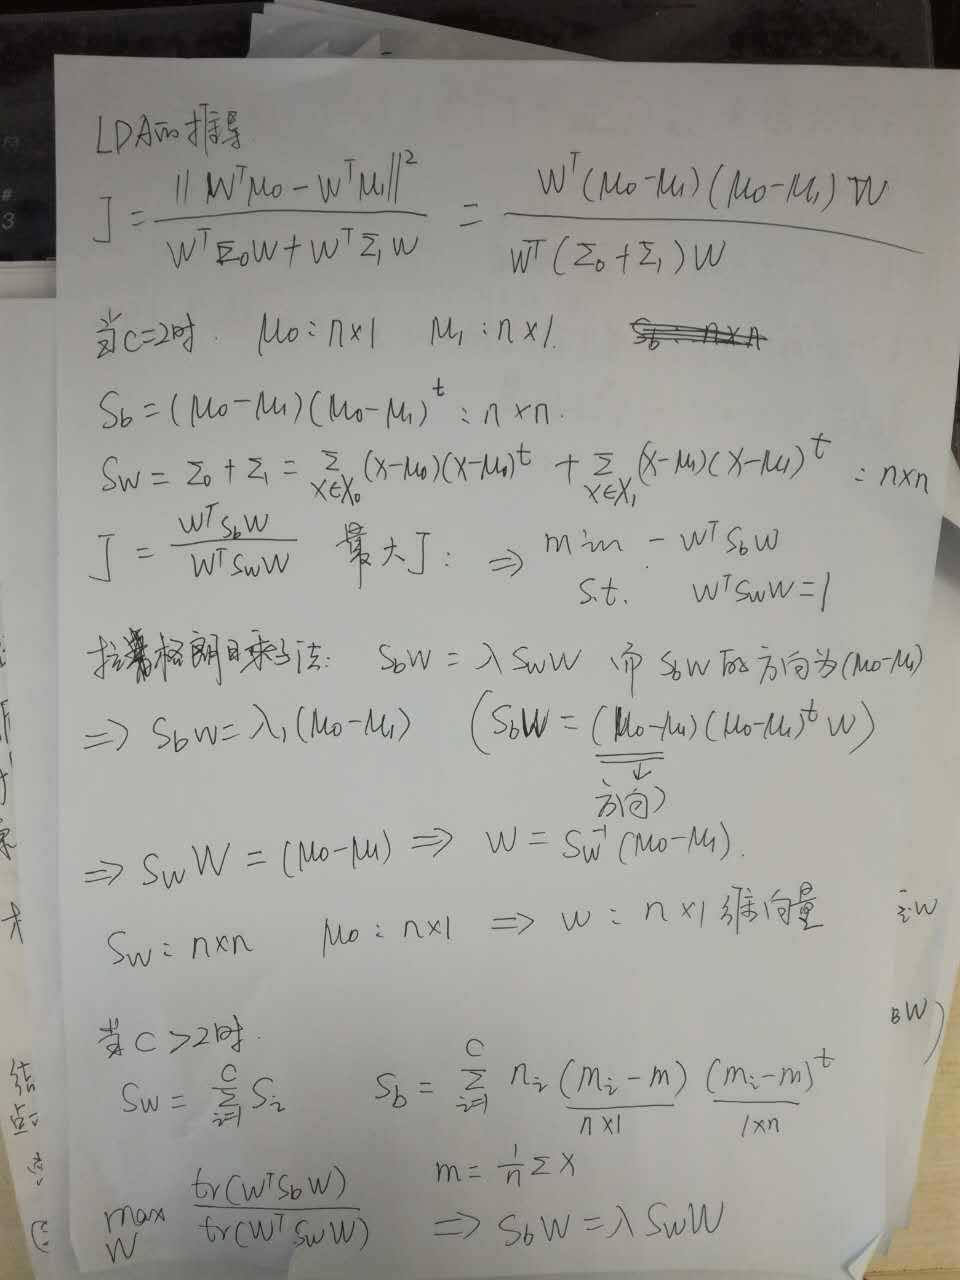 LDA的推导
J = ||W^T μ0 - W^T μ1||^2 / (W^T Σ0 W + W^T Σ1 W) = W^T (μ0-μ1)(μ0-μ1) W / (W^T (Σ0+Σ1) W)
当C=2时. μ0:n×1 μ1:n×1. Sb:n×n
Sb=(μ0-μ1)(μ0-μ1)^t : n×n.
Sw = Σ0+Σ1 = Σ_{X∈X0} (x-μ0)(x-μ0)^t + Σ_{X∈X1} (x-μ1)(x-μ1)^t : n×n
J = W^T Sb W / (W^T Sw W) 最大J: ⇒ min - W^T Sb W
s.t. W^T Sw W = 1
拉格朗日乘子法: Sb W = λ Sw W 而 Sb W 的方向为(μ0-μ1)
⇒ Sb W = λ1(μ0-μ1) (Sb W = (μ0-μ1)(μ0-μ1)^t W)
↓
方向)
⇒ Sw W = (μ0-μ1) ⇒ W = Sw^-1 (μ0-μ1).
Sw: n×n μ0: n×1 ⇒ W: n×1 维向量
当C>2时.
Sw = Σ_{i=1}^{C} Si Sb = Σ_{i=1}^{C} ni (mi-m) (mi-m)^t
n×1 1×n
m = 1/n Σ X
max_W tr(W^T Sb W) / tr(W^T Sw W) ⇒ Sb W = λ Sw W